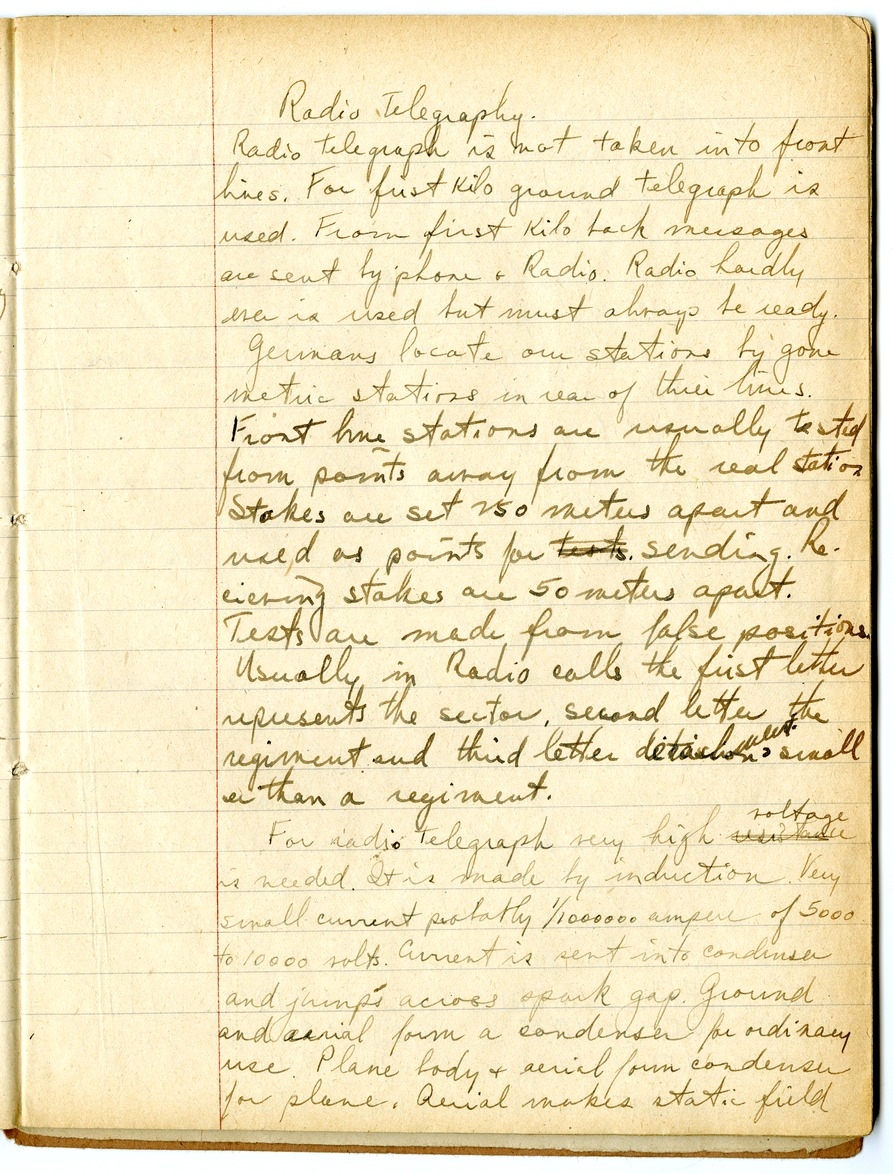 Radio Telegraphy.
Radio telegraph is not taken into front
lines. For first Kilo ground telegraph is
used. From first Kilo back messages
are sent by phone & Radio. Radio hardly
ever is used but must always be ready.
Germans locate our stations by gone
metric stations in rear of their lines.
Front line stations are usually tested
from points away from the real station
Stakes are set 250 meters apart and
used as points for tests. sending. Re-
cieving stakes are 50 meters apart.
Tests are made from false positions.
Usually in Radio calls the first letter
represents the sector, second letter the
regiment and third letter detachment small
er than a regiment.
For radio telegraph very high resistance voltage
is needed. It is made by induction. Very
small current probably 1/1000000 ampere of 5000
to 10000 volts. Current is sent into condenser
and jumps across spark gap. Ground
and aerial form a condenser for ordinary
use. Plane body & aerial form condenser
for plane. Aerial makes static field